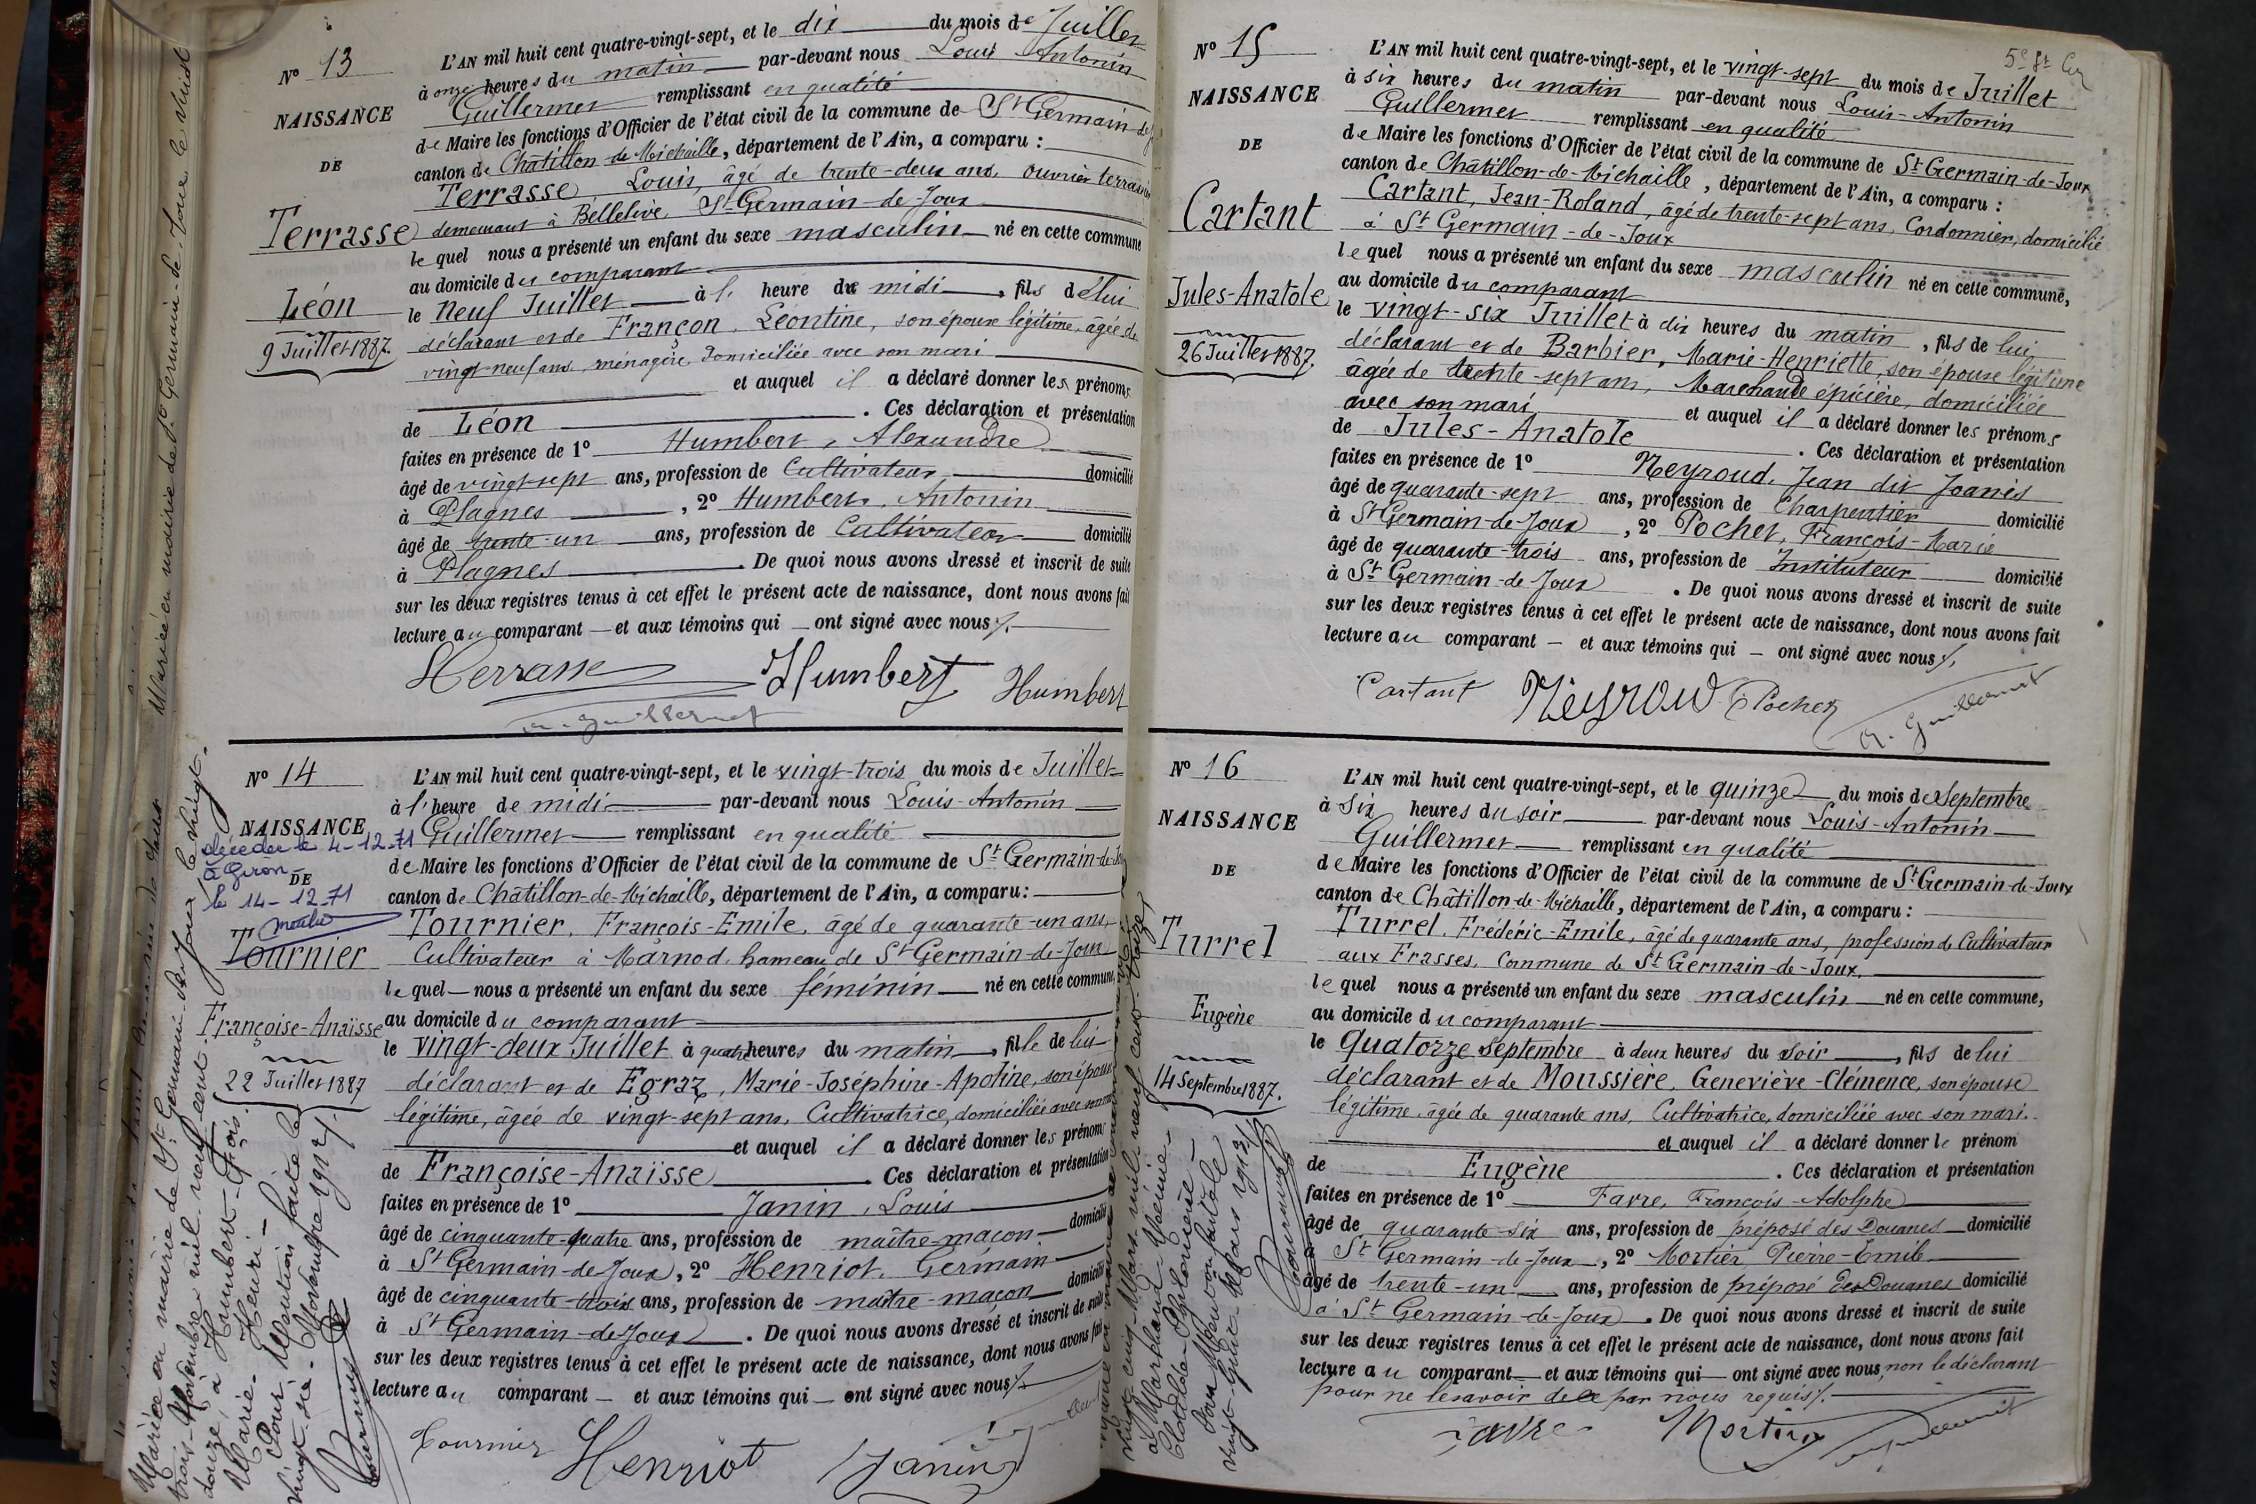 Nº 13
NAISSANCE
DE
Terrasse
Léon
9 Juillet 1887.
L'AN mil huit cent quatre-vingt-sept, et le dix du mois de Juillet
à onze heures du matin par-devant nous Louis Antonin
Guillermet remplissant en qualité
de Maire les fonctions d'Officier de l'état civil de la commune de St Germain-de-J
canton de Châtillon-de-Michaille, département de l'Ain, a comparu :
Terrasse, Louis, âgé de trente-deux ans, ouvrier terrassier
demeurant à Bellelive, St Germain-de-Joux
lequel nous a présenté un enfant du sexe masculin né en cette commune
au domicile du comparant
le neuf Juillet à l' heure de midi, fils de lui
déclarant et de Françon, Léontine, son épouse légitime, âgée de
vingt-neuf ans, ménagère, domiciliée avec son mari
et auquel il a déclaré donner les prénoms
de Léon. Ces déclaration et présentation
faites en présence de 1º Humbert, Alexandre
âgé de vingt-sept ans, profession de Cultivateur domicilié
à Plagnes, 2º Humbert, Antonin
âgé de trente-un ans, profession de Cultivateur domicilié
à Plagnes. De quoi nous avons dressé et inscrit de suite
sur les deux registres tenus à cet effet le présent acte de naissance, dont nous avons fait
lecture au comparant et aux témoins qui ont signé avec nous
Terrasse Humbert Humbert
a. Guillermet
Nº 14
NAISSANCE
DE
décéder le 4-12-71
à Giron
le 14-12-71
Tournier
Françoise-Anaïsse
22 Juillet 1887
L'AN mil huit cent quatre-vingt-sept, et le vingt-trois du mois de Juillet
à l'heure de midi par-devant nous Louis-Antonin
Guillermet remplissant en qualité
de Maire les fonctions d'Officier de l'état civil de la commune de St Germain-de-Jo
canton de Châtillon-de-Michaille, département de l'Ain, a comparu :
Tournier, François-Emile, âgé de quarante-un ans,
Cultivateur à Marnod, hameau de St Germain-de-Joux
lequel nous a présenté un enfant du sexe féminin né en cette commune,
au domicile du comparant
le vingt-deux Juillet à quatre heures du matin, fille de lui
déclarant et de Egraz, Marie-Joséphine-Apoline, son épouse
légitime, âgée de vingt-sept ans, Cultivatrice, domiciliée avec son mari
et auquel il a déclaré donner les prénoms
de Françoise-Anaïsse. Ces déclaration et présentation
faites en présence de 1º Janin, Louis
âgé de cinquante-quatre ans, profession de maître-maçon domicilié
à St Germain-de-Joux, 2º Henriot, Germain
âgé de cinquante-trois ans, profession de maître-maçon domicilié
à St Germain-de-Joux. De quoi nous avons dressé et inscrit de suite
sur les deux registres tenus à cet effet le présent acte de naissance, dont nous avons fait
lecture au comparant et aux témoins qui ont signé avec nous
Tournier Henriot Janin
Mariée en mairie de St Germain-de-Joux le vingt-
trois Novembre mil neuf cent
douze, à Humbert-
Marie-Henri-
Pour Mention faite le
vingt-six Novembre 1912
Mariée en mairie de St Germain-de-Joux le vingt
Nº 15
NAISSANCE
DE
Cartant
Jules-Anatole
26 Juillet 1887.
L'AN mil huit cent quatre-vingt-sept, et le vingt-sept du mois de Juillet
à six heures du matin par-devant nous Louis-Antonin
Guillermet remplissant en qualité
de Maire les fonctions d'Officier de l'état civil de la commune de St Germain-de-Joux
canton de Châtillon-de-Michaille, département de l'Ain, a comparu :
Cartant, Jean-Roland, âgé de trente-sept ans, Cordonnier, domicilié
à St Germain-de-Joux
lequel nous a présenté un enfant du sexe masculin né en cette commune,
au domicile du comparant
le vingt-six Juillet à dix heures du matin, fils de lui
déclarant et de Barbier, Marie-Henriette, son épouse légitime
âgée de trente-sept ans, Marchande épicière, domiciliée
avec son mari et auquel il a déclaré donner les prénoms
de Jules-Anatole. Ces déclaration et présentation
faites en présence de 1º Neyroud, Jean dit Joanès
âgé de quarante-sept ans, profession de Charpentier domicilié
à St Germain-de-Joux, 2º Pochet, François-Marie
âgé de quarante-trois ans, profession de Instituteur domicilié
à St Germain-de-Joux. De quoi nous avons dressé et inscrit de suite
sur les deux registres tenus à cet effet le présent acte de naissance, dont nous avons fait
lecture au comparant et aux témoins qui ont signé avec nous
Cartant Neyroud Pochet
a. Guillermet
Nº 16
NAISSANCE
DE
Turrel
Eugène
14 Septembre 1887.
L'AN mil huit cent quatre-vingt-sept, et le quinze du mois de Septembre
à six heures du soir par-devant nous Louis-Antonin
Guillermet remplissant en qualité
de Maire les fonctions d'Officier de l'état civil de la commune de St Germain-de-Joux
canton de Châtillon-de-Michaille, département de l'Ain, a comparu :
Turrel, Frédéric-Emile, âgé de quarante ans, profession de Cultivateur
aux Frasses, commune de St Germain-de-Joux,
lequel nous a présenté un enfant du sexe masculin né en cette commune,
au domicile du comparant
le quatorze septembre à deux heures du soir, fils de lui
déclarant et de Moussière, Geneviève-Clémence, son épouse
légitime, âgée de quarante ans, Cultivatrice, domiciliée avec son mari.
et auquel il a déclaré donner le prénom
de Eugène. Ces déclaration et présentation
faites en présence de 1º Favre, François-Adolphe
âgé de quarante-six ans, profession de préposé des Douanes domicilié
à St Germain-de-Joux, 2º Mortier, Pierre-Emile
âgé de trente-un ans, profession de préposé des Douanes domicilié
à St Germain-de-Joux. De quoi nous avons dressé et inscrit de suite
sur les deux registres tenus à cet effet le présent acte de naissance, dont nous avons fait
lecture au comparant et aux témoins qui ont signé avec nous, non le déclarant
pour ne le savoir de ce par nous requis
Favre Mortier